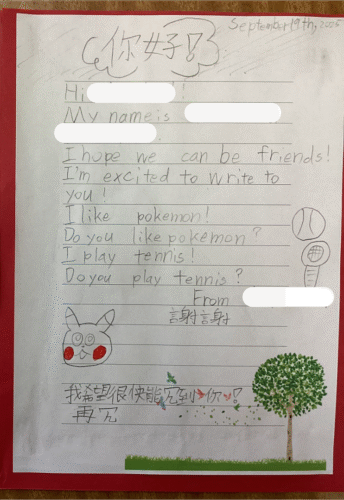 September 19th,
你好!
Hi !
My name is
I hope we can be friends!
I'm excited to write to
you!
I like pokemon!
Do you like pokemon?
I play tennis!
Do you play tennis?
From
謝謝
我希望很快能见到你!
再见